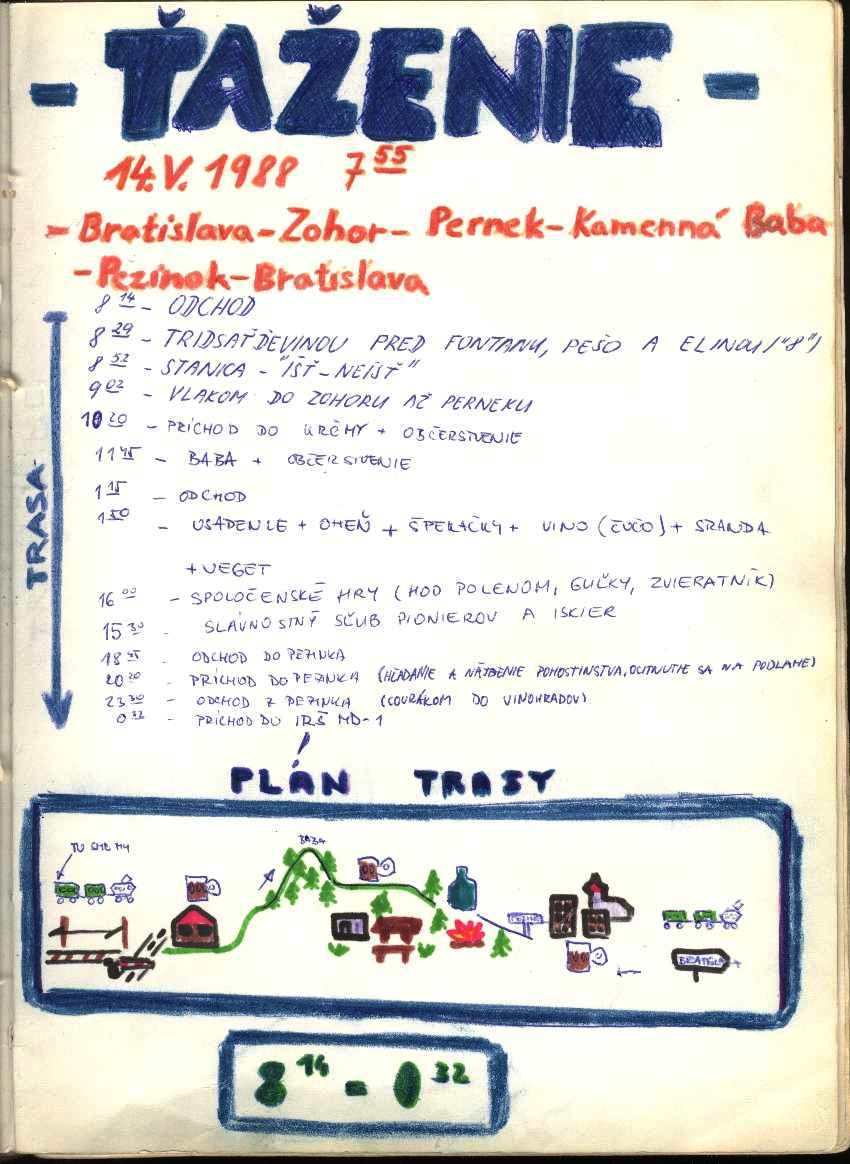 - ŤAŽENIE -
14.V. 1988 7 55
- Bratislava - Zohor - Pernek - Kamenná Baba
- Pezinok - Bratislava
TRASA
8 14 - ODCHOD
8 29 - TRIDSAŤDEVINOU PRED FONTANU, PEŠO A ELINOU ("8")
8 52 - STANICA - "ÍSŤ-NEÍSŤ"
9 02 - VLAKOM DO ZOHORU AŽ PERNEKU
10 20 - PRÍCHOD DO KRČMY + OBČERSTVENIE
11 45 - BABA + OBČERSTVENIE
1 15 - ODCHOD
1 50 - USADENIE + OHEŇ + ŠPEKAČKY + VINO (ČUČO) + SRANDA
+ VEGET
16 00 - SPOLOČENSKÉ HRY (HOD POLENOM, GUĽKY, ZVIERATNÍK)
15 30 - SLÁVNOSTNÝ SĽUB PIONIEROV A ISKIER
18 45 - ODCHOD DO PEZINKA
20 20 - PRÍCHOD DO PEZINKA (HĽADANIE A NÁJDENIE POHOSTINSTVA, OCITNUTIE SA NA PODLAHE)
23 30 - ODCHOD Z PEZINKA (COURÁKOM DO VINOHRADOV)
0 32 - PRÍCHOD DO IRŠ MD-1
!
PLÁN TRASY
TU SME MY
BABA
8 14 - 0 32